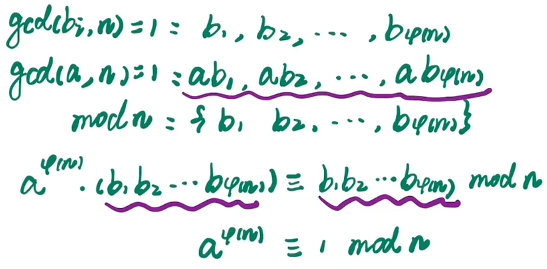 gcd(bᵢ,n)=1: b₁, b₂, ⋯, bφ(n)
gcd(a,n)=1: ab₁, ab₂, ⋯, abφ(n)
mod n = { b₁ b₂, ⋯, bφ(n)}
a^φ(n) · (b₁b₂⋯bφ(n)) ≡ b₁b₂⋯bφ(n) mod n
a^φ(n) ≡ 1 mod n